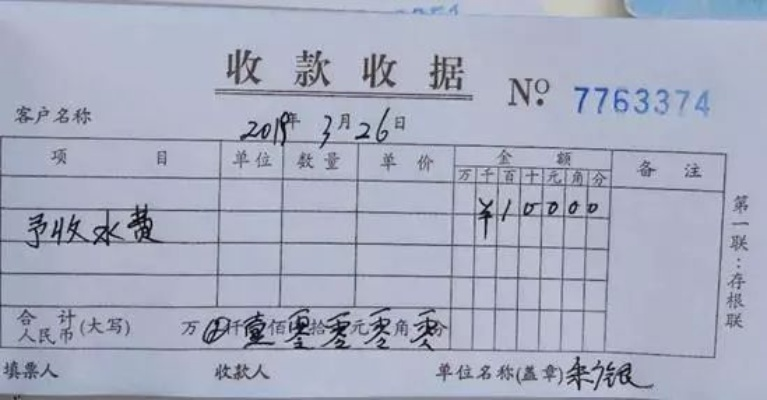 收款收据 No. 7763374
客户名称 2019年3月26日
项目 单位 数量 单价 金额 备注
万 千 百 十 元 角 分
予收水费 ¥10000
第一联：存根联
合计人民币(大写) 万 仟壹佰零拾零元零角零分
填票人 收款人 单位名称(盖章)